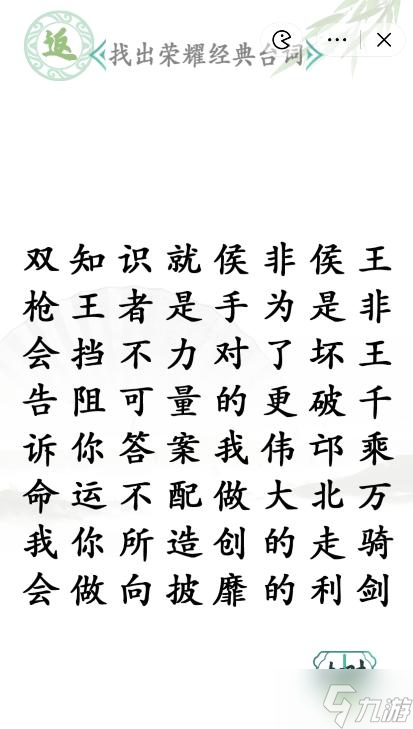 返
找出荣耀经典台词
双知识就侯非侯王
枪王者是手为是非
会挡不力对了坏王
告阻可量的更破千
诉你答案我伟邙乘
命运不配做大北万
我你所造创的走骑
会做向披靡的利剑
九游